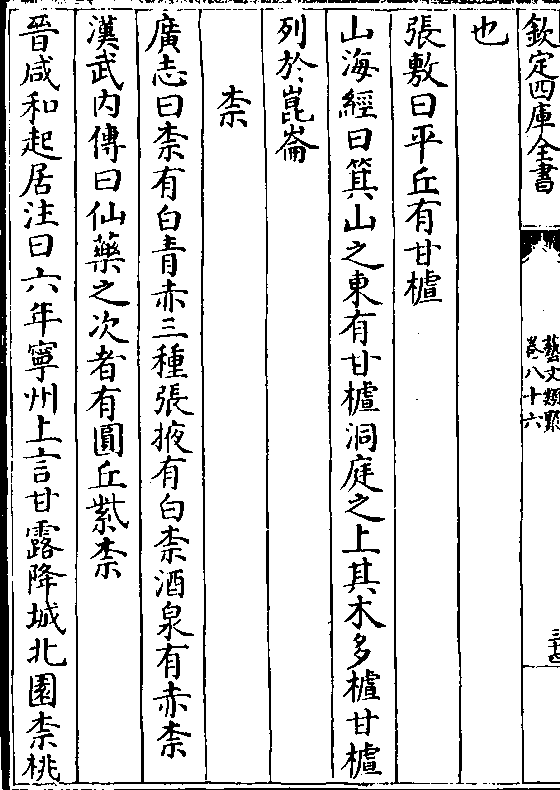 欽定四庫全書
藝文類聚
卷八十六
三十四
也
張敷曰平丘有甘櫨
山海經曰箕山之東有甘櫨洞庭之上其木多櫨甘櫨
列於崑崙
柰
廣志曰柰有白青赤三種張掖有白柰酒泉有赤柰
漢武内傳曰仙藥之次者有圓丘紫柰
晉咸和起居注曰六年寧州上言甘露降城北園柰桃